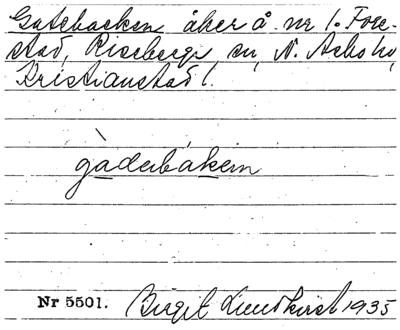 Gatebacken åker å nr 1. Fore-
stad, Riseberga sn, N. Åsbo hd,
Kristianstad l.
gàdebákein
Nr 5501. Birgit Lundkvist 1935